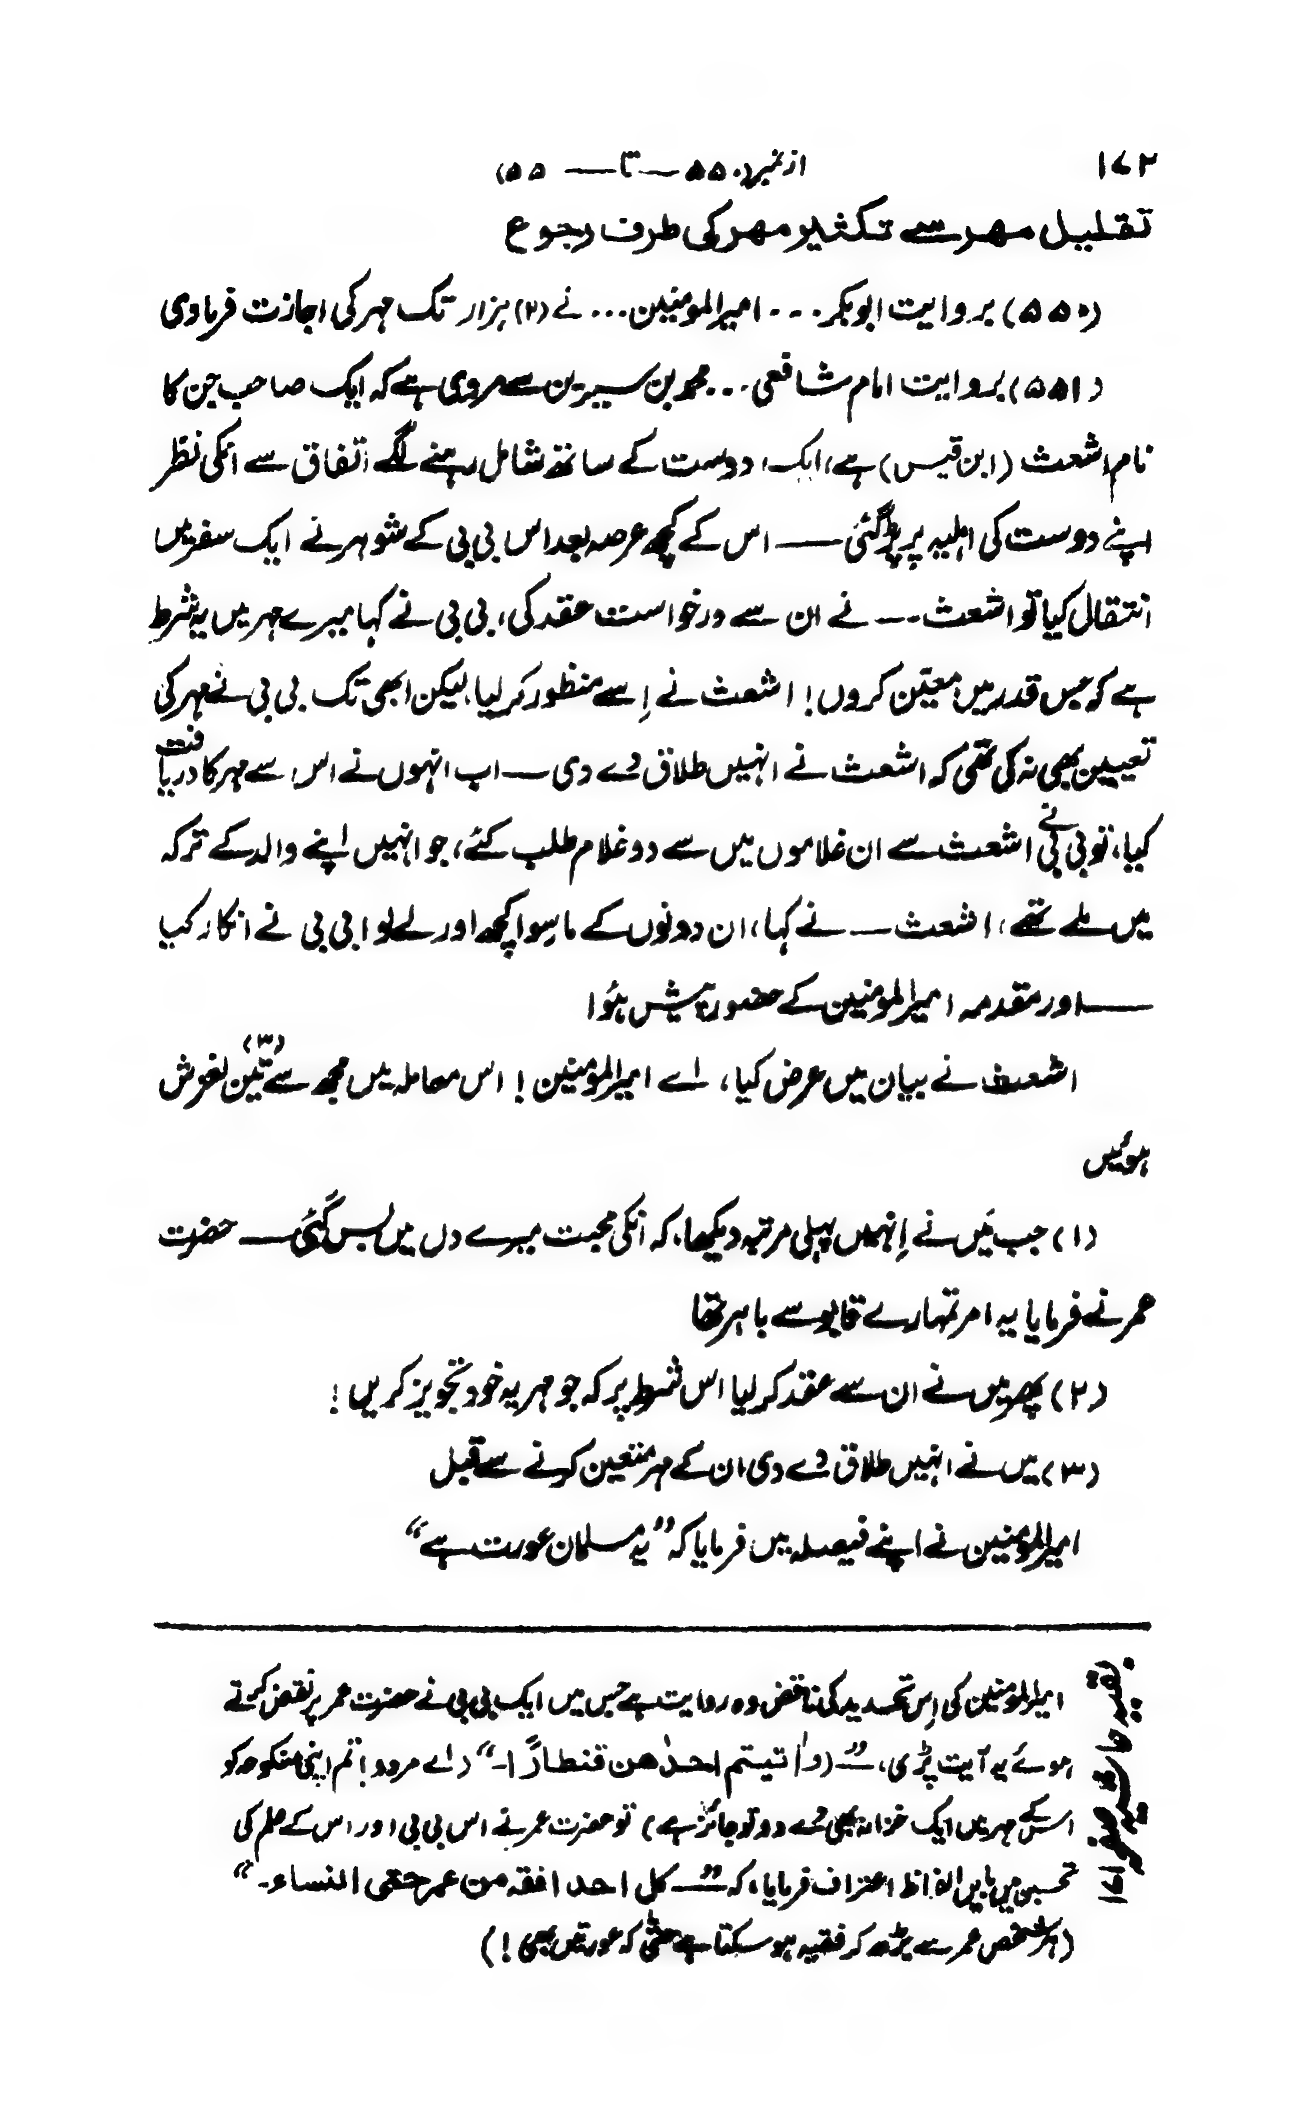 ۱۷۲
از نمبر (۵۵۰ — تا — ۵۵)
تقلیل مہر سے تکثیر مہر کی طرف رجوع
(۵۵۰) بروایت ابوبکر ۔۔۔ امیرالمومنین ... نے (۲) ہزار تک مہر کی اجازت فرما دی
(۵۵۱) بروایت امام شافعی ۔۔۔ محمد بن سیرین سے مروی ہے کہ ایک صاحب جن کا
نام اشعث (ابن قیس) ہے، ایک دوست کے ساتھ شامل رہنے لگے اتفاق سے انکی نظر
اپنے دوست کی اہلیہ پر پڑ گئی — اس کے کچھ عرصہ بعد اس بی بی کے شوہر نے ایک سفر میں
انتقال کیا تو اشعث ۔۔ نے ان سے درخواست عقد کی، بی بی نے کہا میرے مہر میں یہ شرط
ہے کہ جس قدر میں معیّن کروں! اشعث نے اِسے منظور کر لیا، لیکن ابھی تک بی بی نے مہر کی
تعیین بھی نہ کی تھی کہ اشعث نے انہیں طلاق دے دی — اب انہوں نے اس سے مہر کا دریافت
کیا، تو بی بی نے اشعث سے ان غلاموں میں سے دو غلام طلب کئے، جو انہیں اپنے والد کے ترکہ
میں ملے تھے، اشعث — نے کہا، ان دونوں کے ماسوا کچھ اور لے لو! بی بی نے انکار کیا
— اور مقدمہ امیرالمومنین کے حضور پیش ہُوا
اشعث نے بیان میں عرض کیا، اے امیرالمومنین! اس معاملہ میں مجھ سے تین (۳) لغزش
ہوئیں
(۱) جب مَیں نے اِنہیں پہلی مرتبہ دیکھا، کہ انکی محبت میرے دل میں بس گئی — حضرت
عمر نے فرمایا یہ امر تمہارے قابو سے باہر تھا
(۲) پھر میں نے ان سے عقد کر لیا اس شرط پر کہ جو مہر یہ خود تجویز کریں!
(۳) میں نے انہیں طلاق دے دی ان کے مہر متعین کرنے سے قبل
امیرالمومنین نے اپنے فیصلہ میں فرمایا کہ ”یہ مسلمان عورت ہے“
بقیہ حاشیہ صفحہ ۱۷۱
امیرالمومنین کی اِس تحدید کی ناقض وہ روایت ہے جس میں ایک بی بی نے حضرت عمر پر نقض کرتے
ہوئے یہ آیت پڑی، — ”(واٰتیتم احدٰھن قنطارًا۔“ (اے مردو! تم اپنی منکوحہ کو
اسکے مہر میں ایک خزانہ بھی دے دو تو جائز ہے) تو حضرت عمر نے اس بی بی اور اس کے علم کی
تحسین میں بایں الفاظ اعتراف فرمایا، کہ — ”کل احد افقہ من عمر حتی النساء۔“
(ہر شخص عمر سے بڑھ کر فقیہ ہو سکتا ہے حتّی کہ عورتیں بھی!)